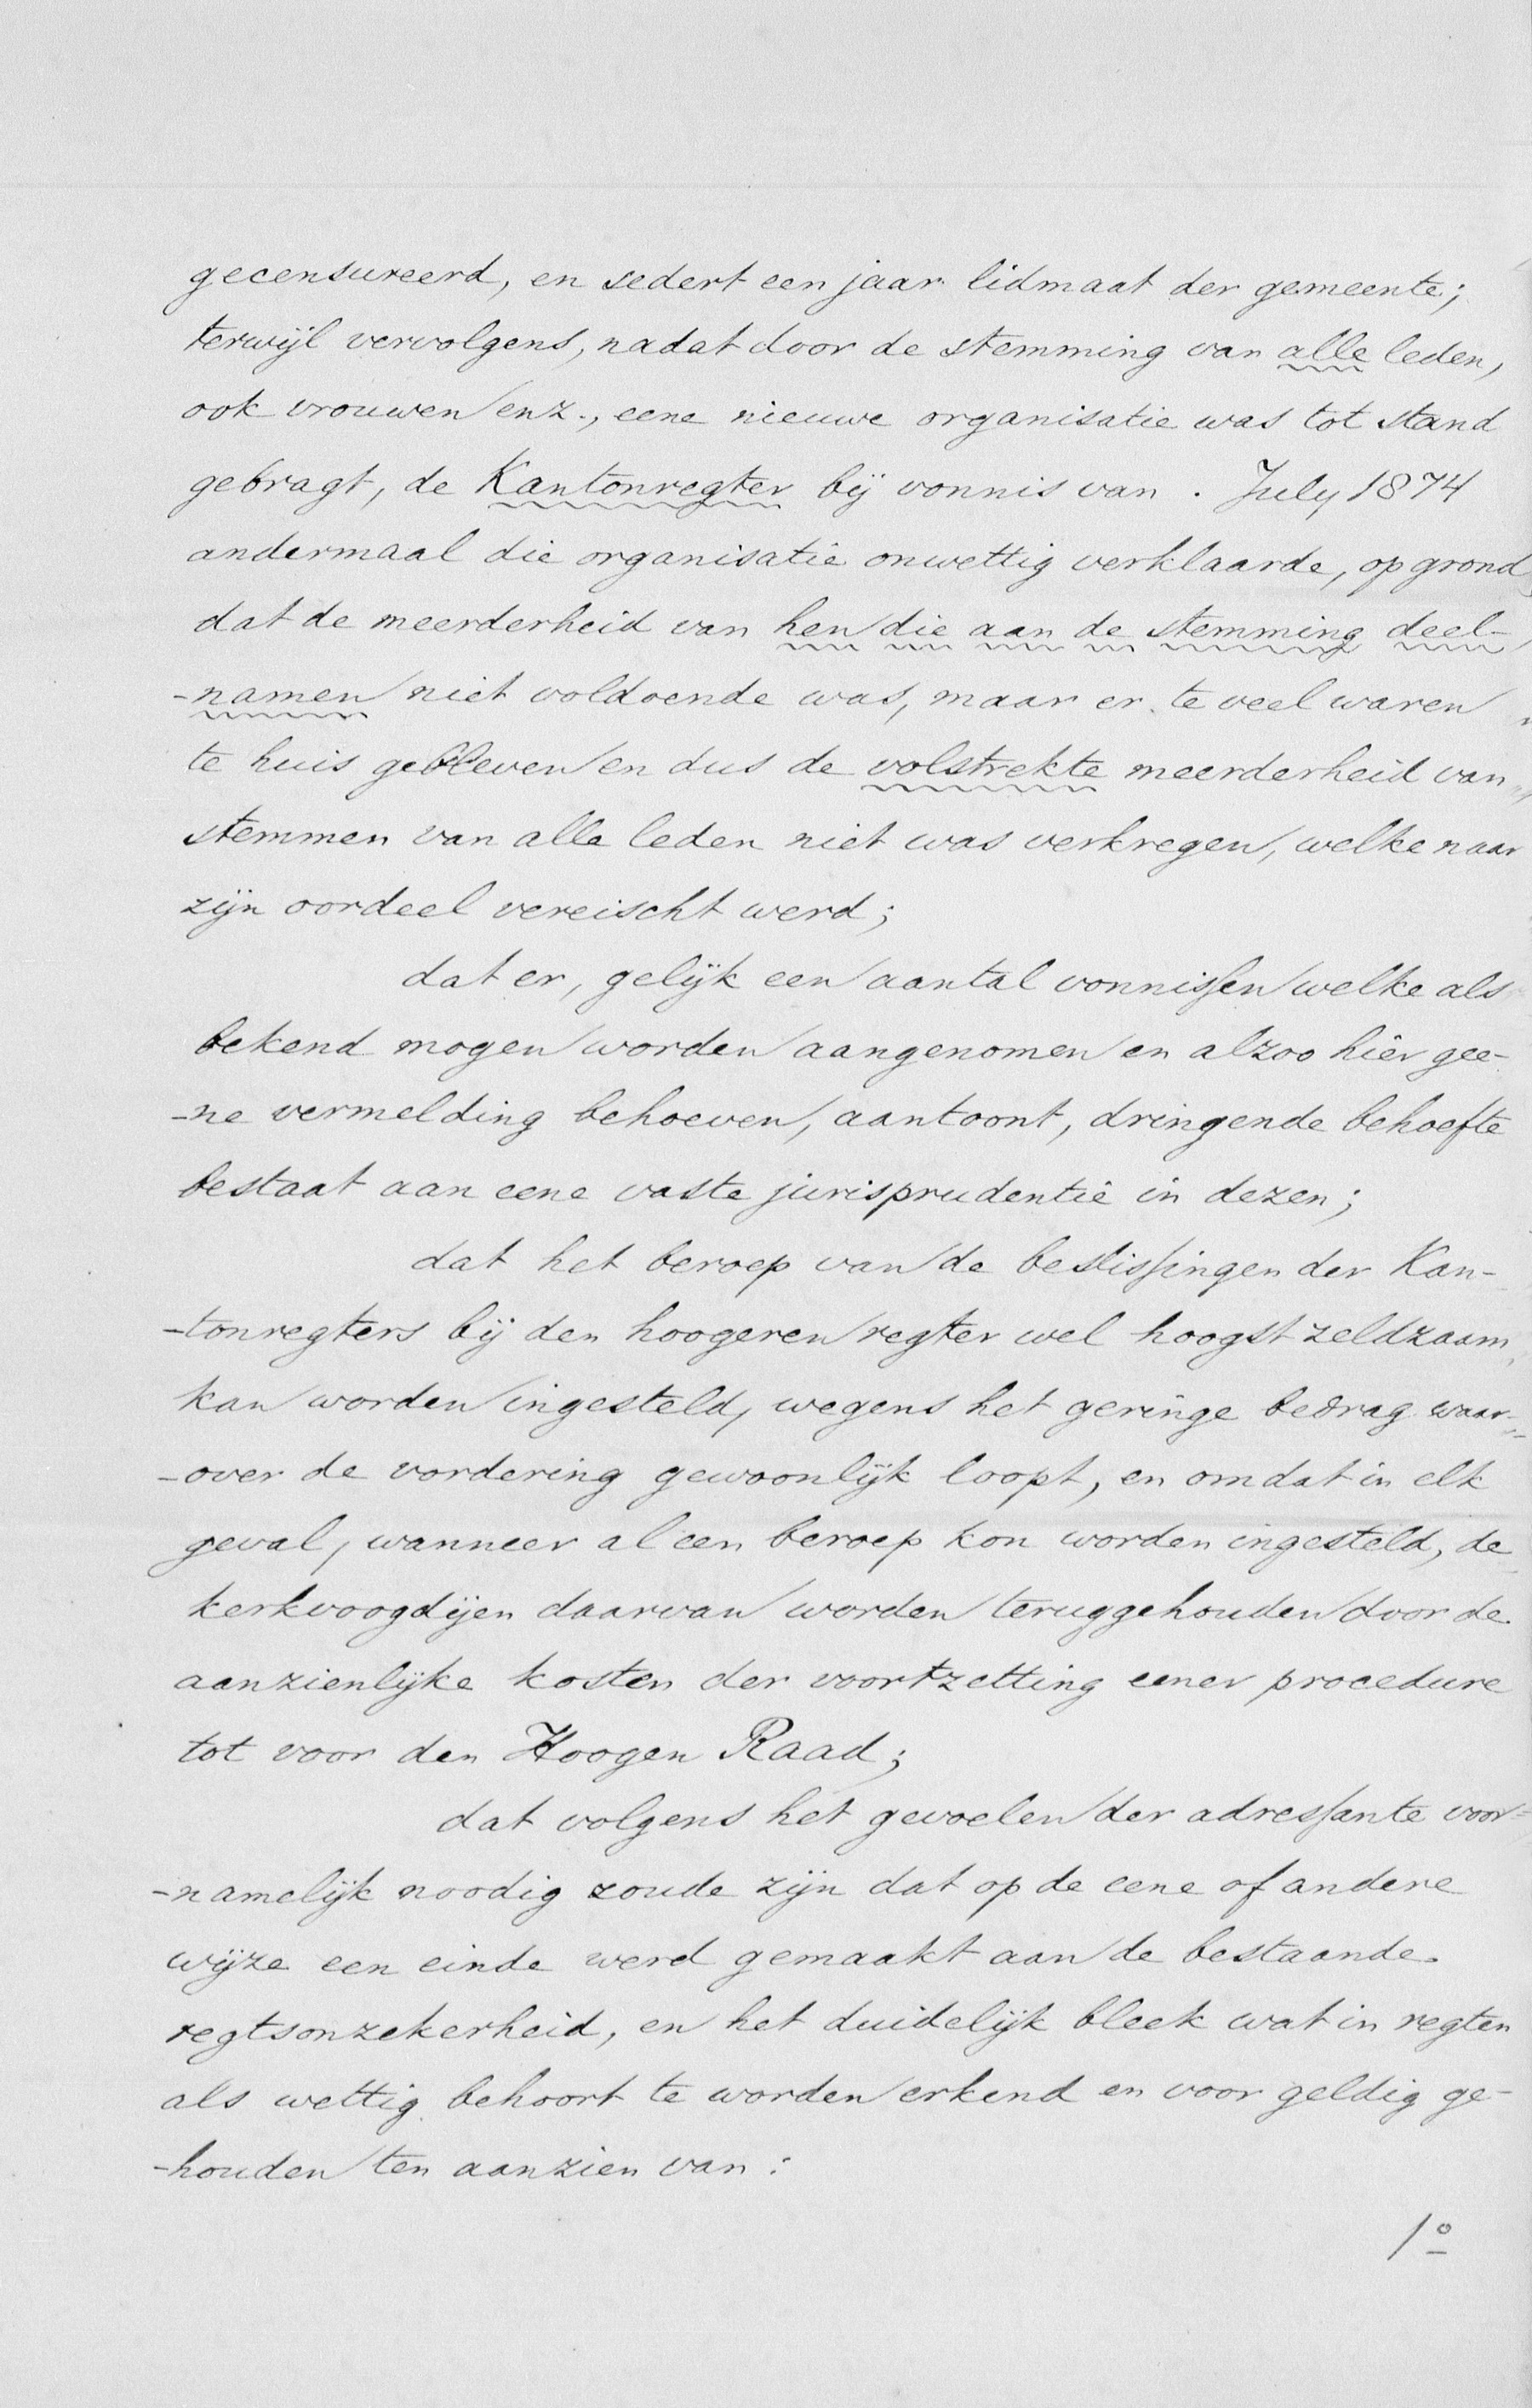 gecensureerd, en sedert een jaar lidmaat der gemeente;
terwijl vervolgens, nadat door de stemming van alle leden,
ook vrouwen enz., eene nieuwe organisatie was tot stand
gebragt, de Kantonregter bij vonnis van . July 1874
andermaal die organisatie onwettig verklaarde, op grond
dat de meerderheid van hen die aan de stemming deel-
-namen niet voldoende was, maar er te veel waren
te huis gebleven en dus de volstrekte meerderheid van
stemmen van alle leden niet was verkregen, welke naar
zijn oordeel vereischt werd;
dat er, gelijk een aantal vonnissen welke als
bekend mogen worden aangenomen en alzoo hier gee-
-ne vermelding behoeven, aantoont, dringende behoefte
bestaat aan eene vaste jurisprudentie in dezen;
dat het beroep van de beslissingen der Kan-
-tonregters bij den hoogeren regter wel hoogst zeldzaam
kan worden ingesteld, wegens het geringe bedrag waar-
-over de vordering gewoonlijk loopt, en omdat in elk
geval, wanneer al een beroep kon worden ingesteld, de
kerkvoogdijen daarvan worden teruggehouden door de
aanzienlijke kosten der voortzetting eener procedure
tot voor den Hoogen Raad;
dat volgens het gevoelen der adressante voor-
-namelijk noodig zoude zijn dat op de eene of andere
wijze een einde werd gemaakt aan de bestaande
regtsonzekerheid, en het duidelijk bleek wat in regten
als wettig behoort te worden erkend en voor geldig ge-
-houden ten aanzien van:
1º